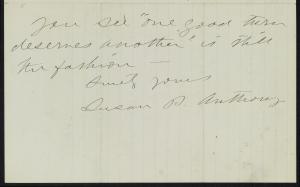 You see "one good turn
deserves another" is still
the fashion —
Sinc'y yours
Susan B. Anthony